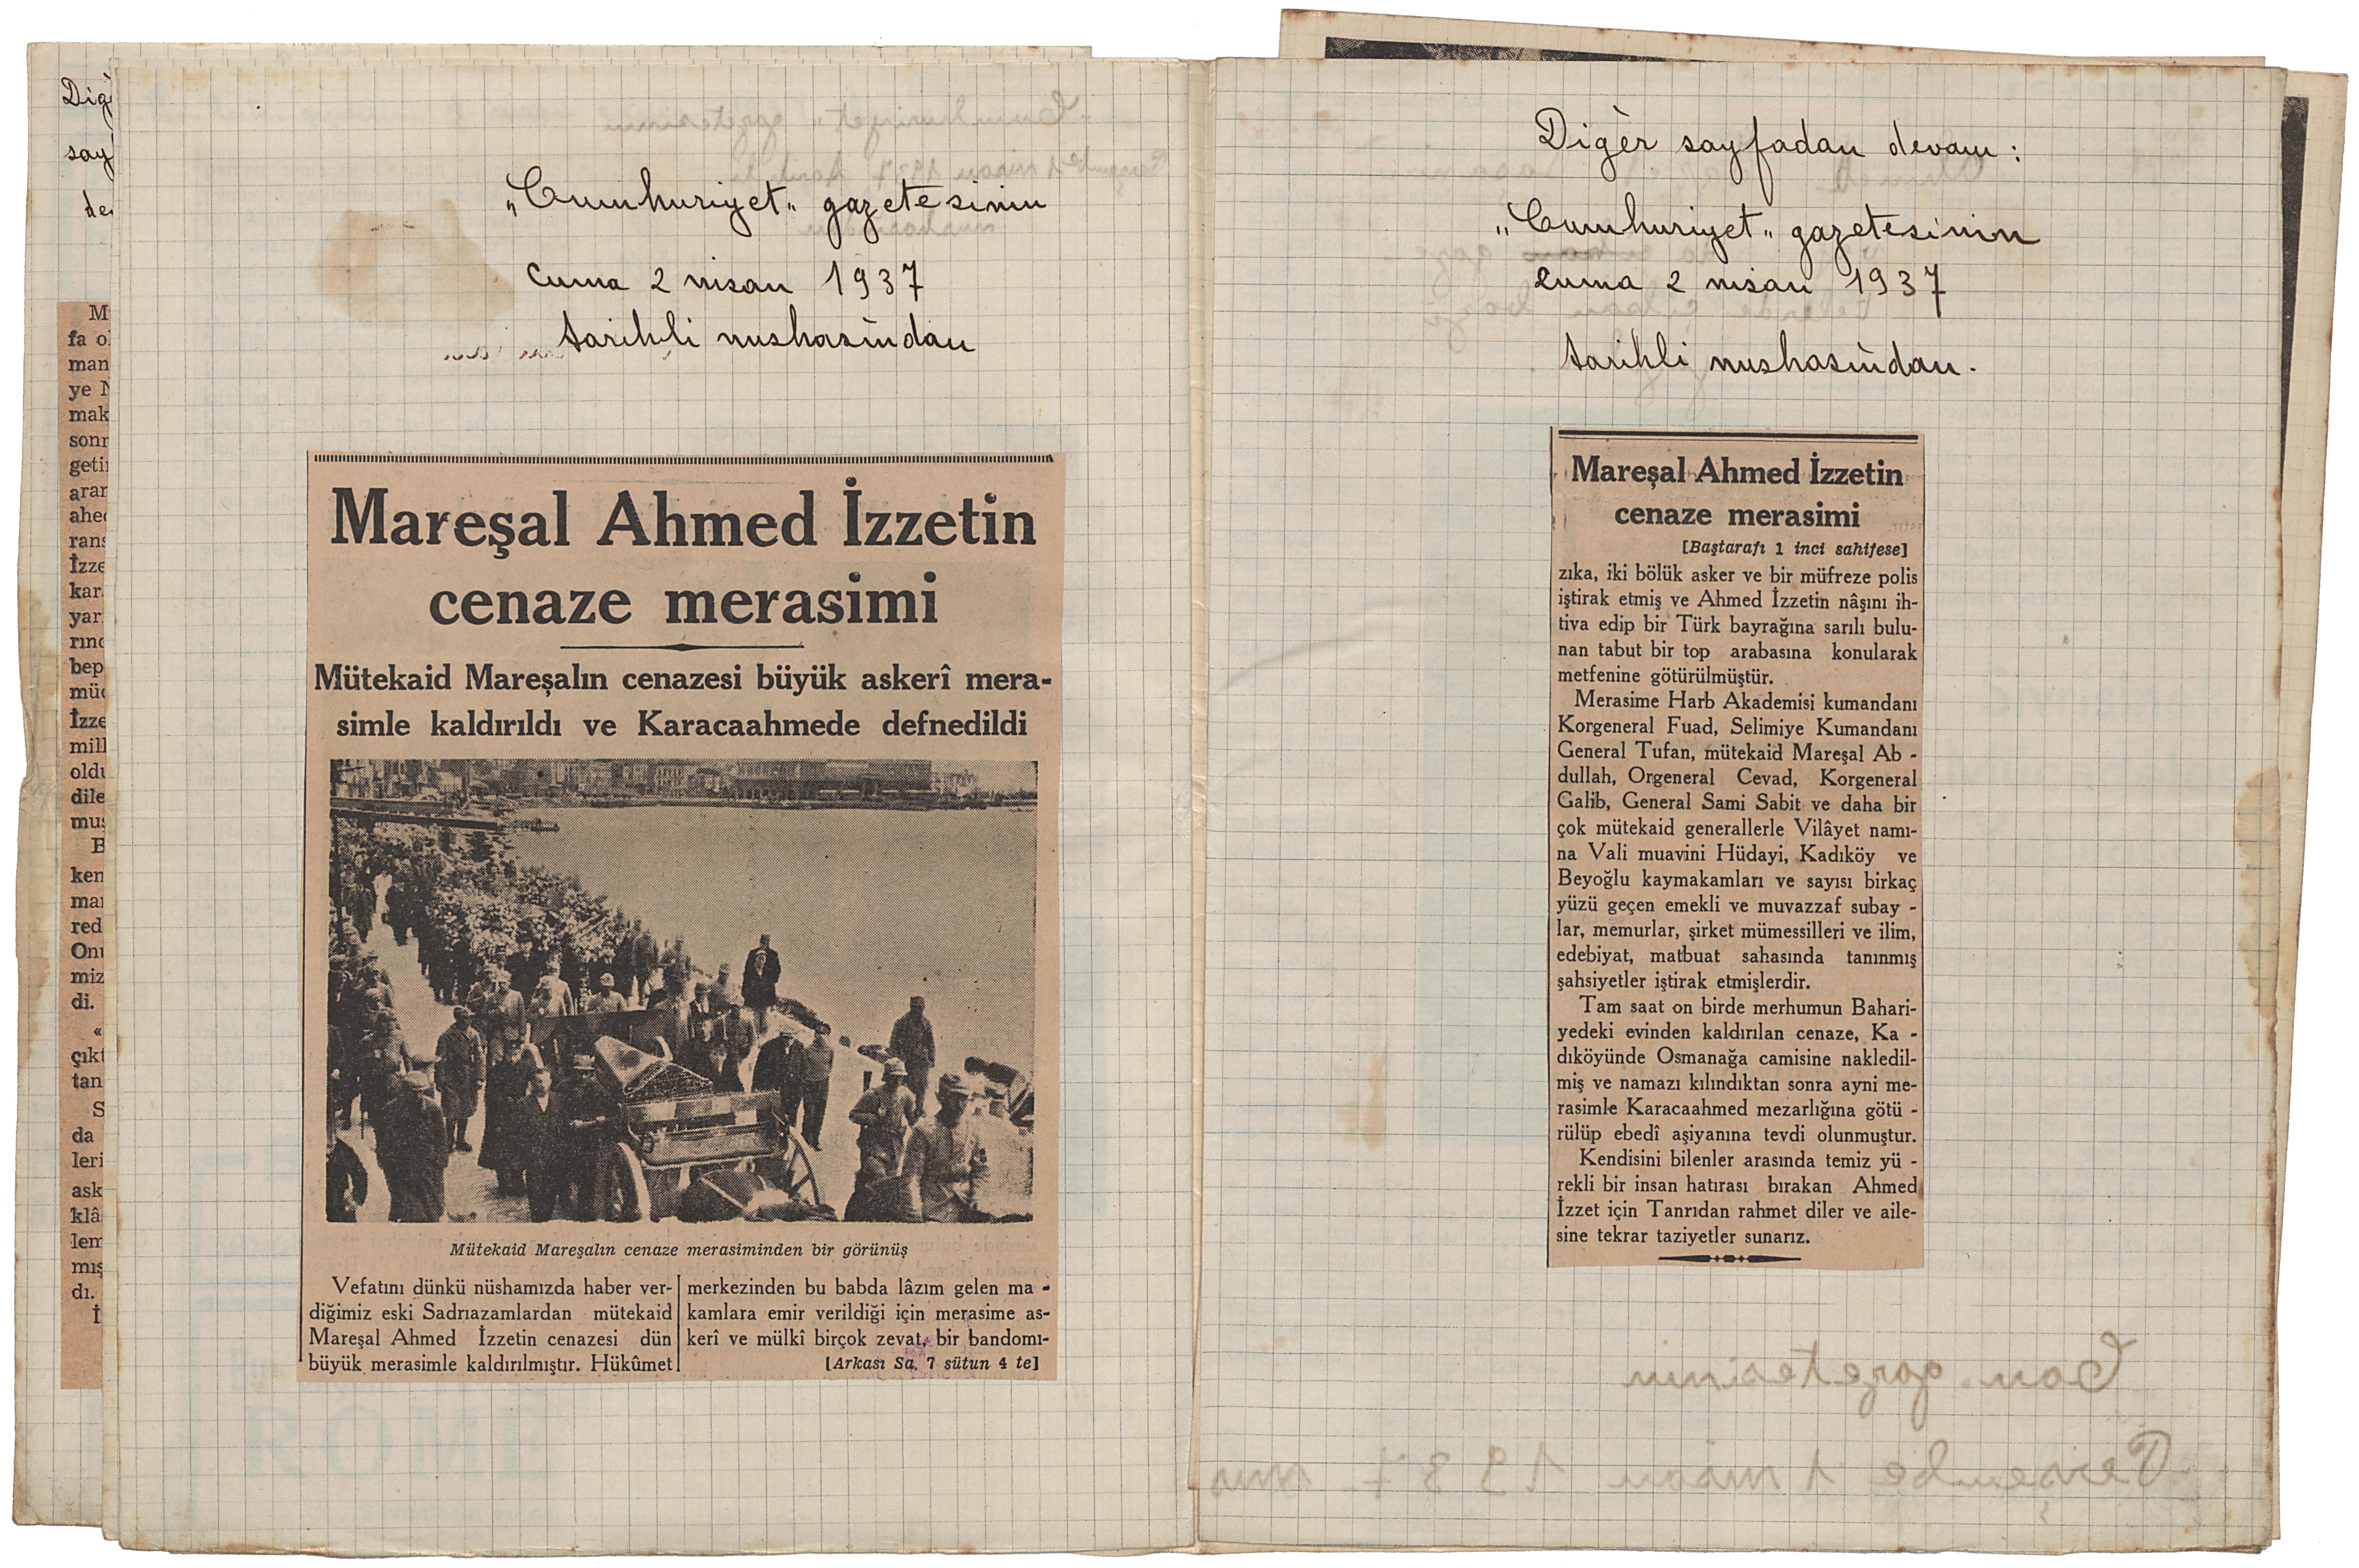 Diğ
say
de
M
fa ol
man
ye N
mak
sonr
getir
arar
ahed
rans
İzze
kar
yar
rınd
bep
müd
İzze
mill
oldu
dile
mus
B
ken
mar
red
Onu
miz
di.
«
çıkt
tan
S
da
leri
ask
klâ
lem
mış
dı.
İ
„Cumhuriyet„ gazetesinin
cuma 2 nisan 1937
tarihli nushasından
Mareşal Ahmed İzzetin
cenaze merasimi
Mütekaid Mareşalın cenazesi büyük askerî mera-
simle kaldırıldı ve Karacaahmede defnedildi
Mütekaid Mareşalın cenaze merasiminden bir görünüş
Vefatını dünkü nüshamızda haber ver-
diğimiz eski Sadrıazamlardan mütekaid
Mareşal Ahmed İzzetin cenazesi dün
büyük merasimle kaldırılmıştır. Hükûmet
merkezinden bu babda lâzım gelen ma -
kamlara emir verildiği için merasime as-
kerî ve mülkî birçok zevat, bir bandomı-
[Arkası Sa. 7 sütun 4 te]
Diğèr sayfadan devam :
„Cumhuriyet„ gazetesinin
cuma 2 nisan 1937
tarihli nushasından.
Mareşal Ahmed İzzetin
cenaze merasimi
[Baştarafı 1 inci sahifese]
zıka, iki bölük asker ve bir müfreze polis
iştirak etmiş ve Ahmed İzzetin nâşını ih-
tiva edip bir Türk bayrağına sarılı bulu-
nan tabut bir top arabasına konularak
metfenine götürülmüştür.
Merasime Harb Akademisi kumandanı
Korgeneral Fuad, Selimiye Kumandanı
General Tufan, mütekaid Mareşal Ab -
dullah, Orgeneral Cevad, Korgeneral
Galib, General Sami Sabit ve daha bir
çok mütekaid generallerle Vilâyet namı-
na Vali muavini Hüdayi, Kadıköy ve
Beyoğlu kaymakamları ve sayısı birkaç
yüzü geçen emekli ve muvazzaf subay -
lar, memurlar, şirket mümessilleri ve ilim,
edebiyat, matbuat sahasında tanınmış
şahsiyetler iştirak etmişlerdir.
Tam saat on birde merhumun Bahari-
yedeki evinden kaldırılan cenaze, Ka -
dıköyünde Osmanağa camisine nakledil-
miş ve namazı kılındıktan sonra ayni me-
rasimle Karacaahmed mezarlığına götü -
rülüp ebedî aşiyanına tevdi olunmuştur.
Kendisini bilenler arasında temiz yü -
rekli bir insan hatırası bırakan Ahmed
İzzet için Tanrıdan rahmet diler ve aile-
sine tekrar taziyetler sunarız.